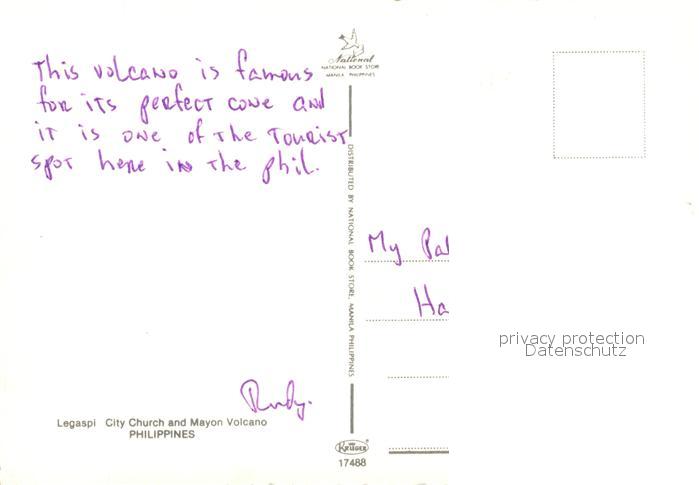 This volcano is famous
for its perfect cone and
it is one of the tourist
spot here in the phil.
Rudy.
Legaspi City Church and Mayon Volcano
PHILIPPINES
National
NATIONAL BOOK STORE
MANILA PHILIPPINES
DISTRIBUTED BY NATIONAL BOOK STORE, MANILA PHILIPPINES
KRÜGER
17488
My Pal
Ha
privacy protection
Datenschutz